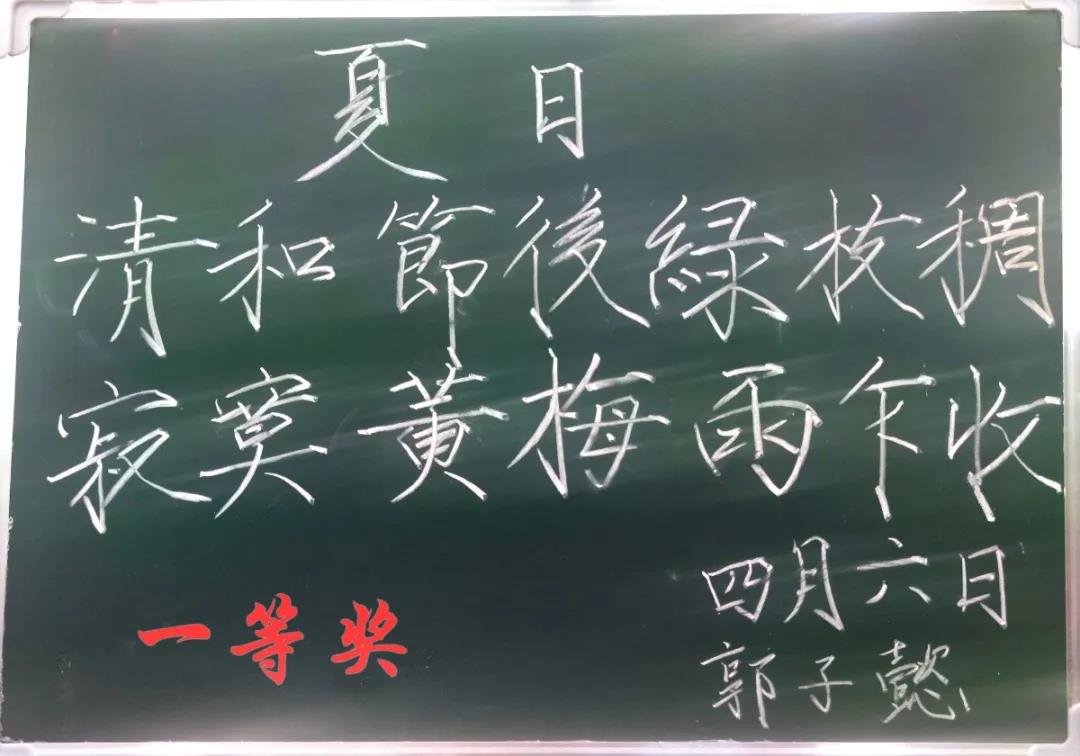 夏日
清和節後緑枝稠
寂寞黄梅雨乍收
四月六日
郭子懿
一等奖